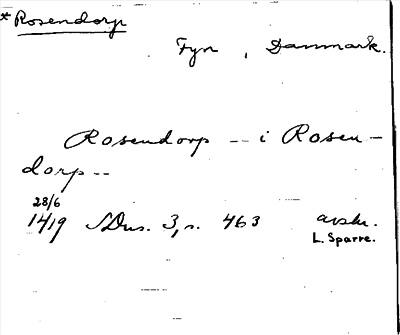 *Rosendorp
Fyn, Danmark.
Rosendorp -- i Rosen-
dorp --
28/6
1419 SDns. 3, s. 463 avskr.
L. Sparre.